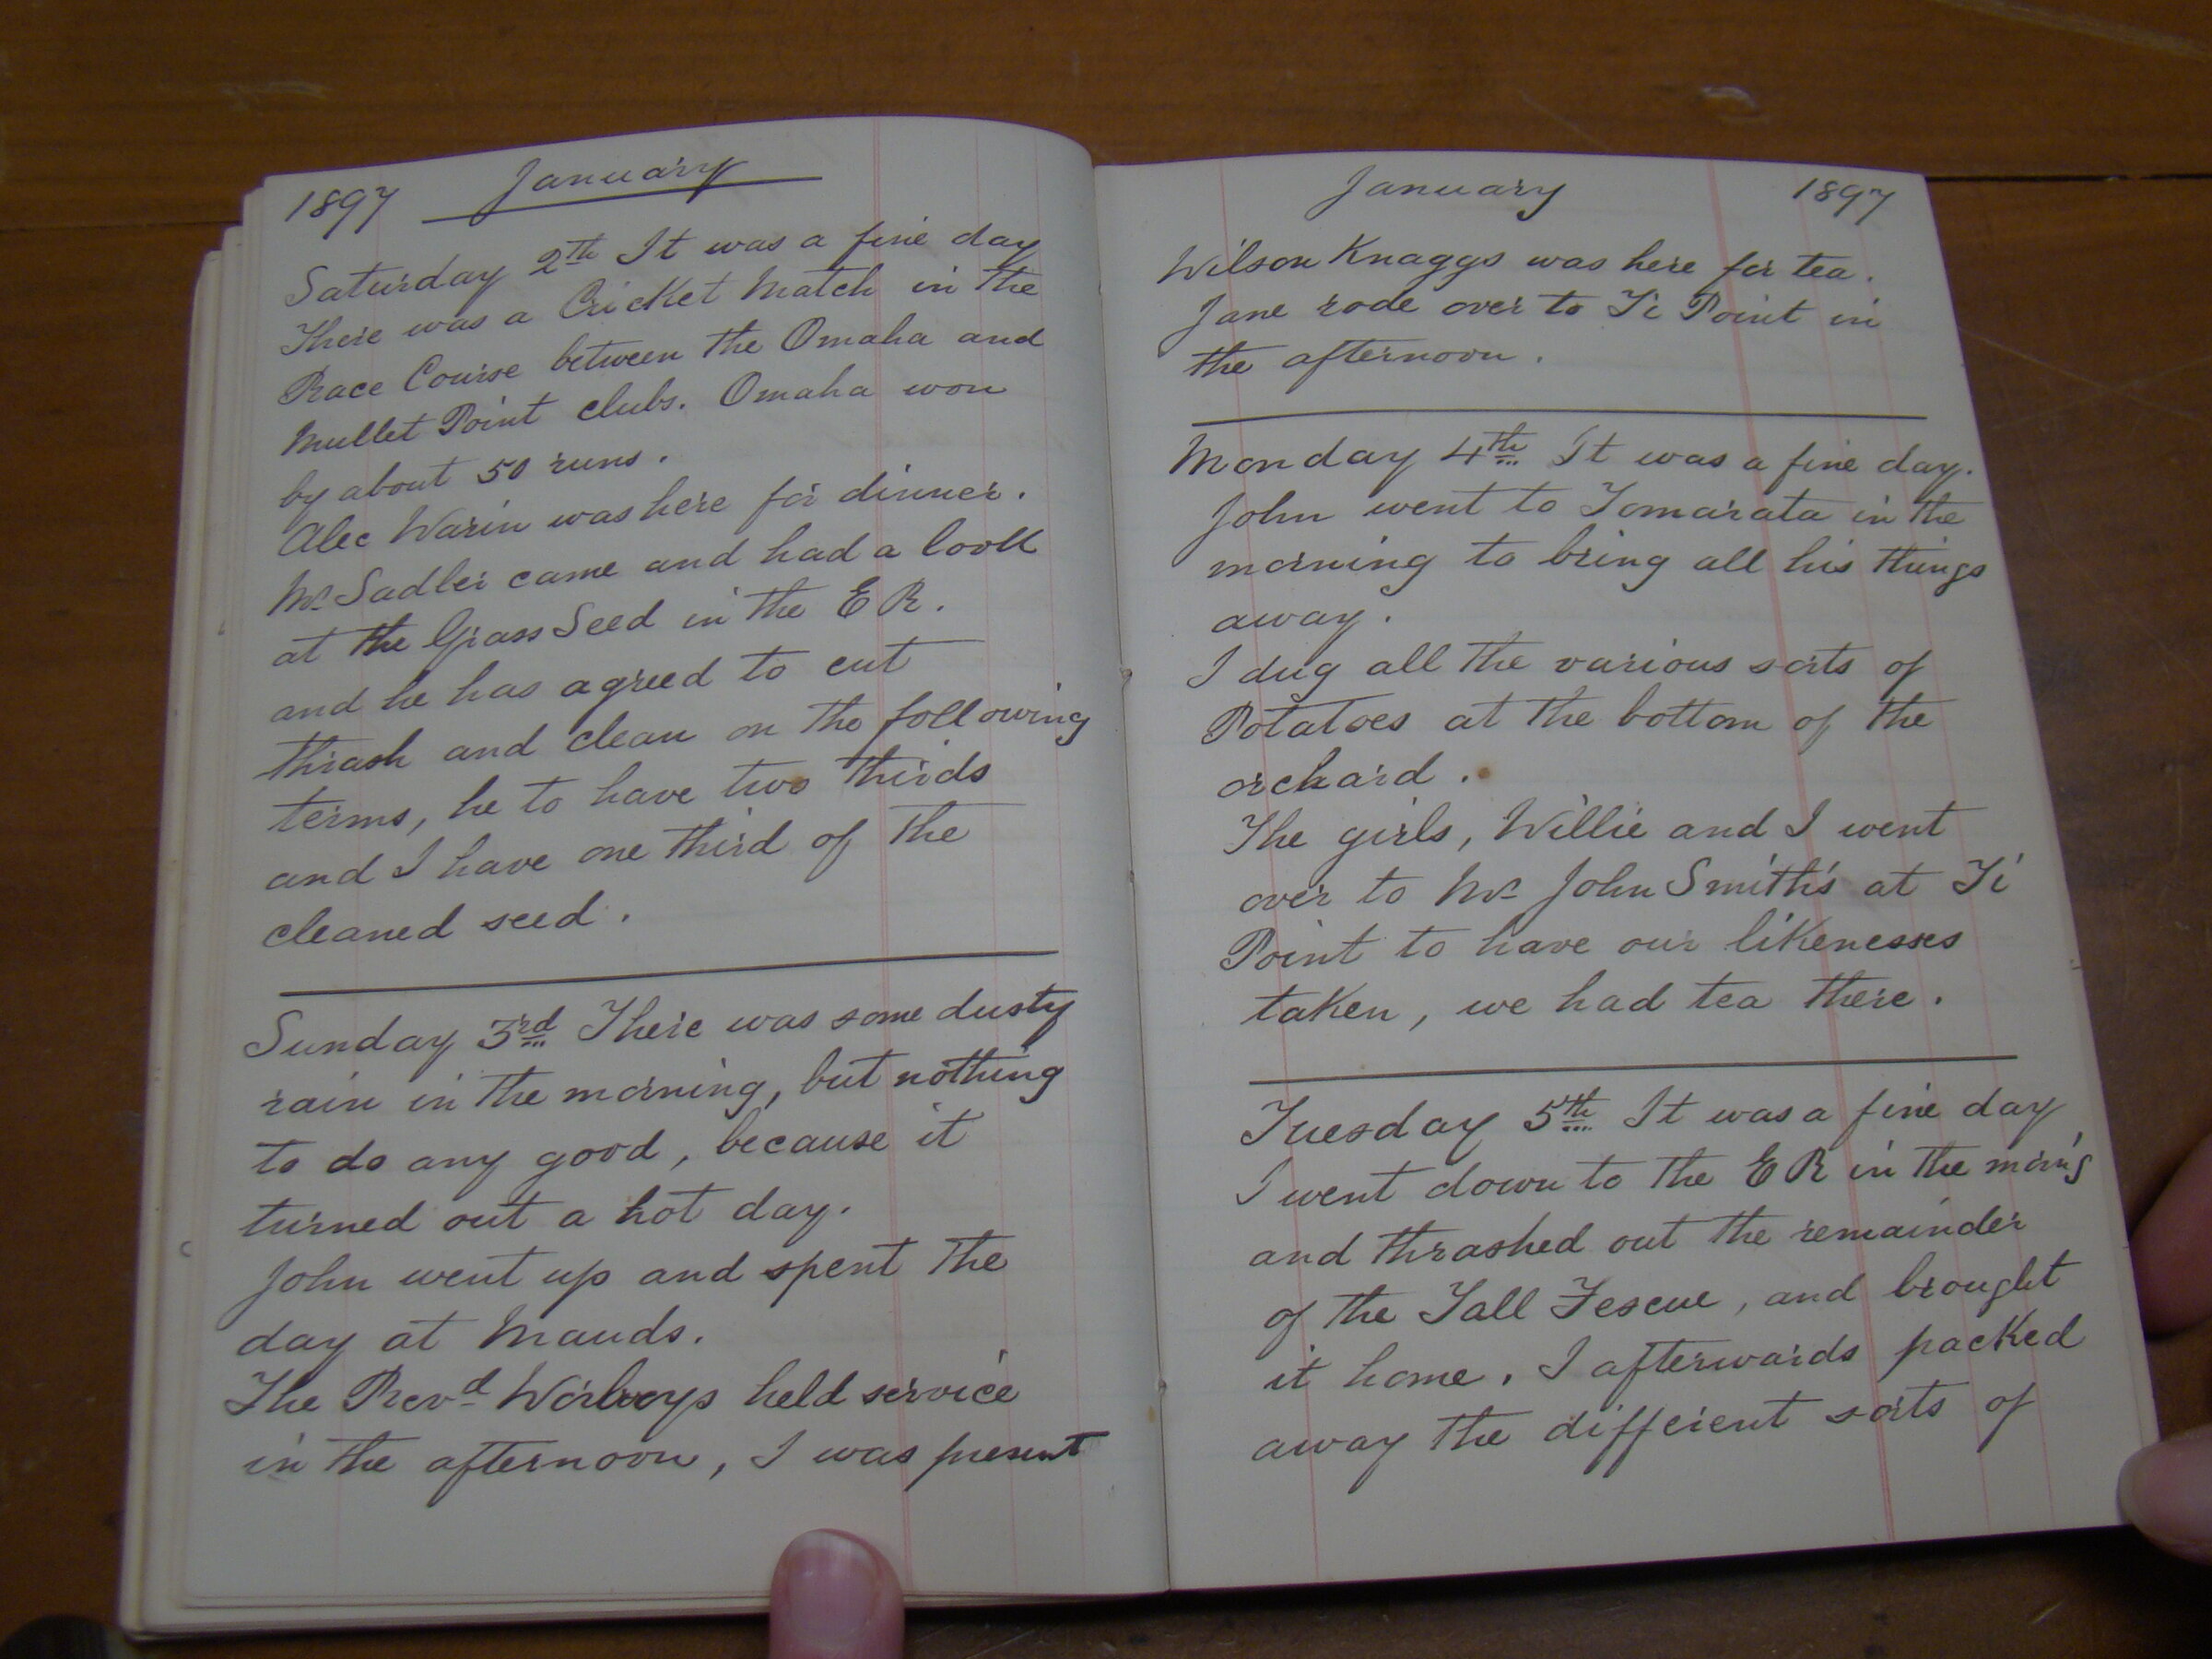 1897 January
Saturday 2th It was a fine day
There was a Cricket Match in the
Race Course between the Omaha and
Mullet Point clubs. Omaha won
by about 50 runs.
Alec Warin was here for dinner.
Mr Sadler came and had a look
at the Grass Seed in the E R.
and he has agreed to cut
thrash and clean on the following
terms, he to have two thirds
and I have one third of the
cleaned seed.
Sunday 3rd There was some dusty
rain in the morning, but nothing
to do any good, because it
turned out a hot day.
John went up and spent the
day at Mauds.
The Revd Worboys held service
in the afternoon, I was present
January 1897
Wilson Knaggs was here for tea.
Jane rode over to Ti Point in
the afternoon.
Monday 4th It was a fine day.
John went to Tomarata in the
morning to bring all his things
away.
I dug all the various sorts of
Potatoes at the bottom of the
orchard.
The girls, Willie and I went
over to Mr John Smith's at Ti
Point to have our likenesses
taken, we had tea there.
Tuesday 5th It was a fine day
I went down to the E R in the morn'g
and thrashed out the remainder
of the Tall Fescue, and brought
it home. I afterwards packed
away the different sorts of